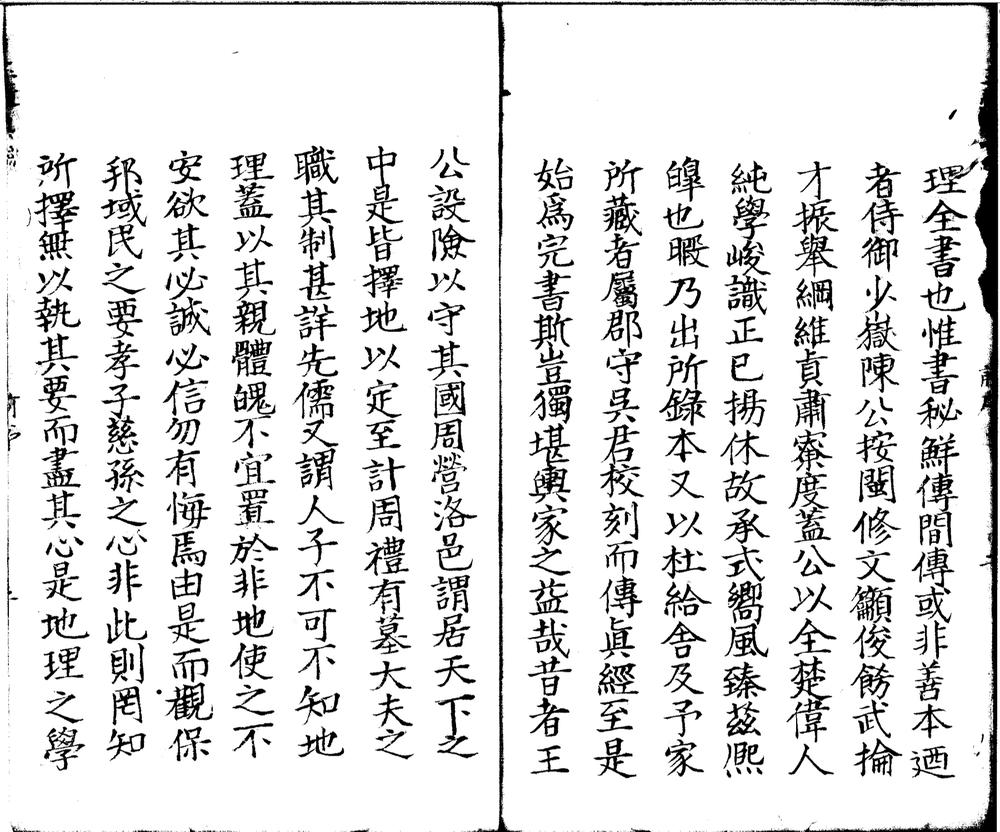 理全書也惟書秘鮮傳間傳或非善本廼
者侍御少嶽陳公按閩修文籲俊餝武掄
才振舉綱維貞肅寮度蓋公以全楚偉人
純學峻識正已揚休故承式嚮風臻茲熈
皥也暇乃出所錄本又以杜給舍及予家
所藏者屬郡守吳君校刻而傳眞經至是
始爲完書斯豈獨堪輿家之益哉昔者王
公設險以守其國周營洛邑謂居天下之
中是皆擇地以定至計周禮有墓大夫之
職其制甚詳先儒又謂人子不可不知地
理蓋以其親體魄不宜置於非地使之不
安欲其必誠必信勿有悔焉由是而觀保
邦域民之要孝子慈孫之心非此則罔知
所擇無以執其要而盡其心是地理之學